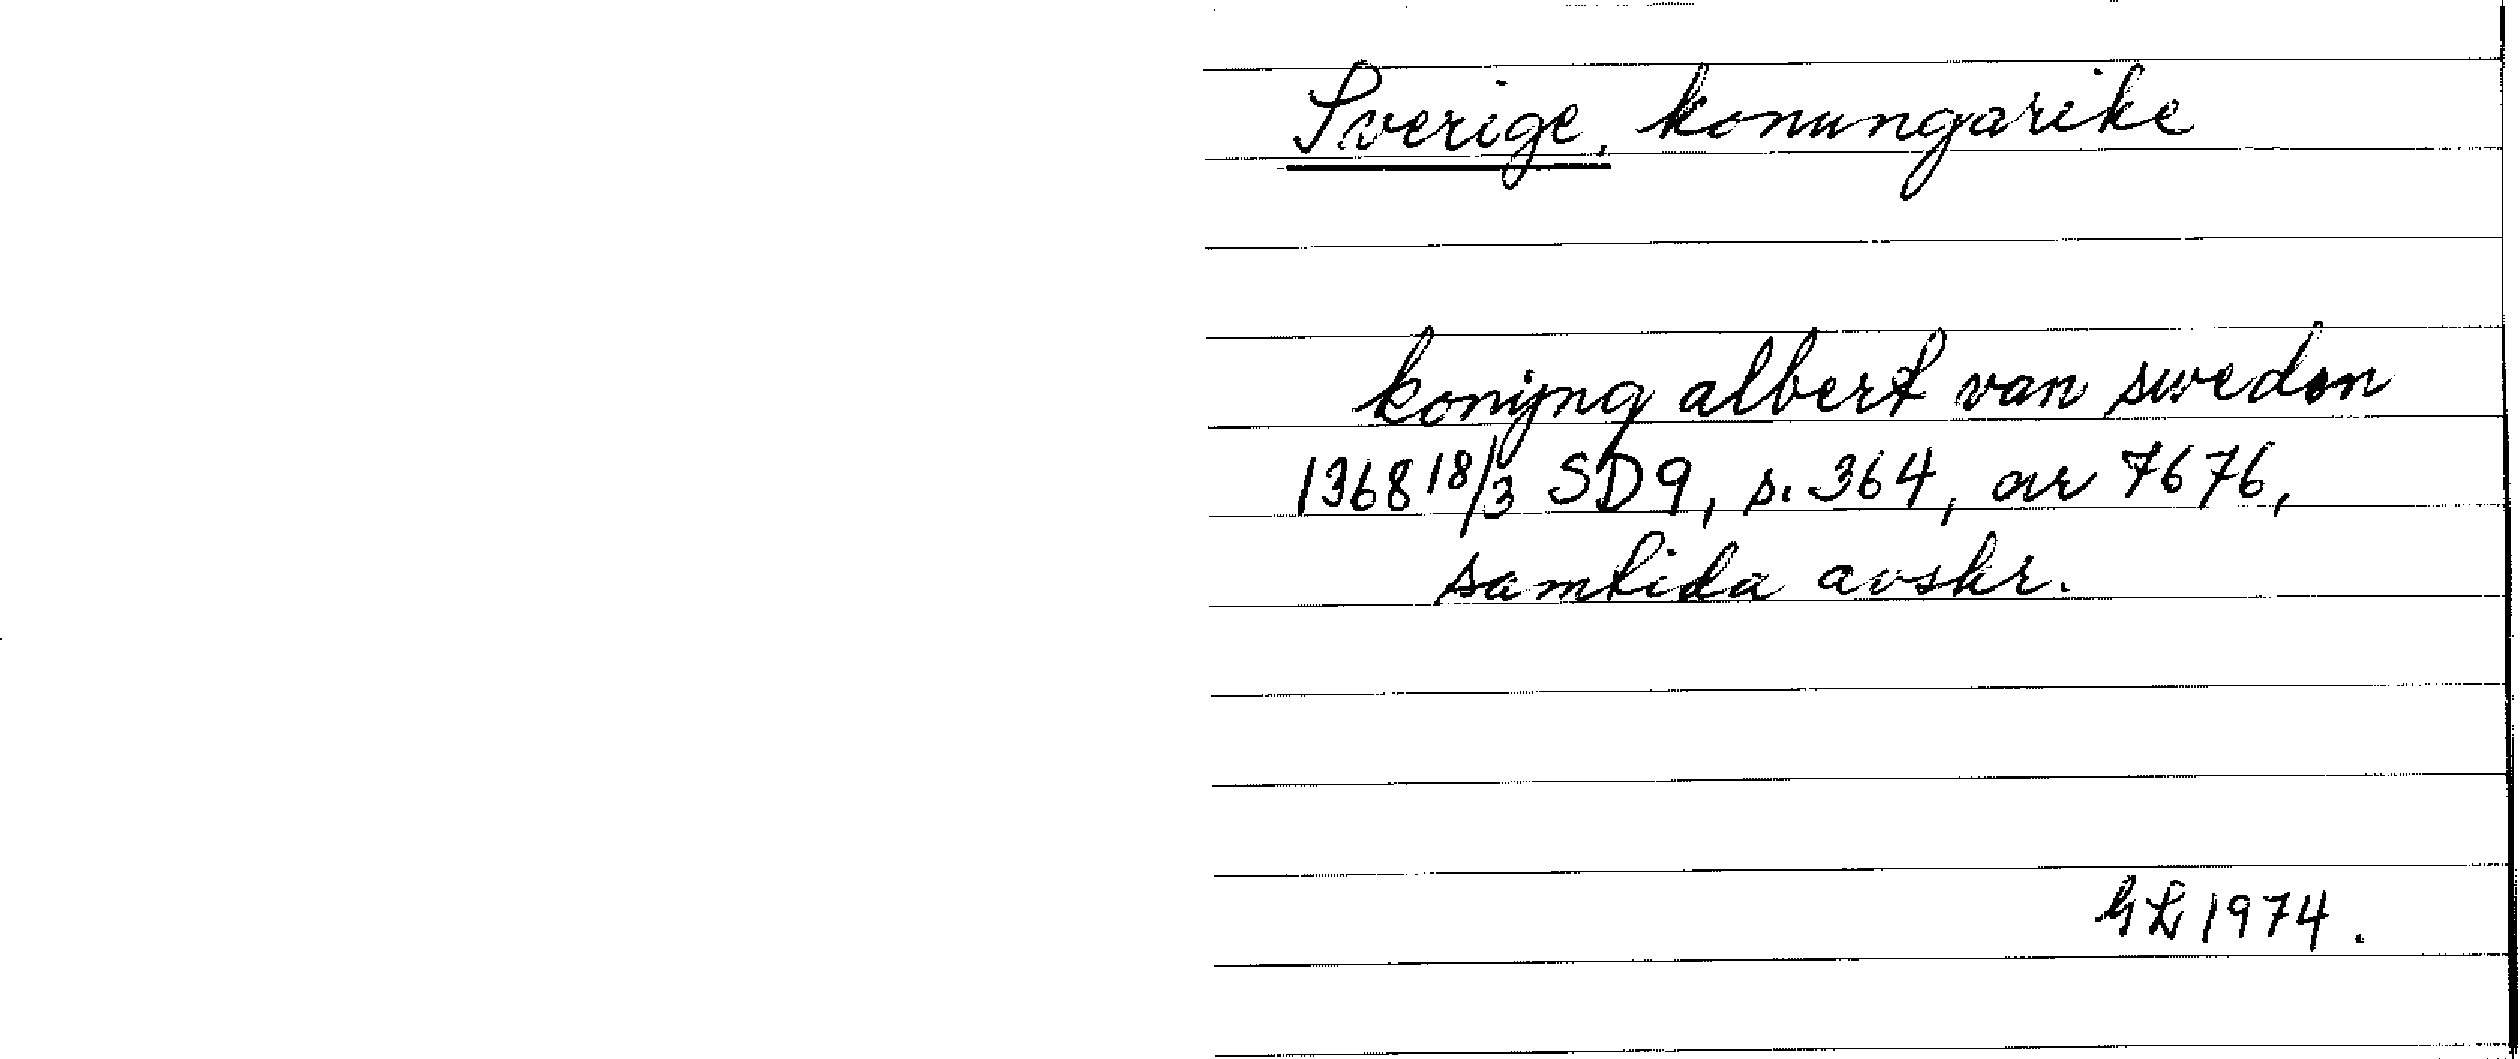 Sverige, konungarike
konÿng albert van sweden
1368 18/3 SD9, s. 364, nr 7676,
samtida avskr.
GL 1974.